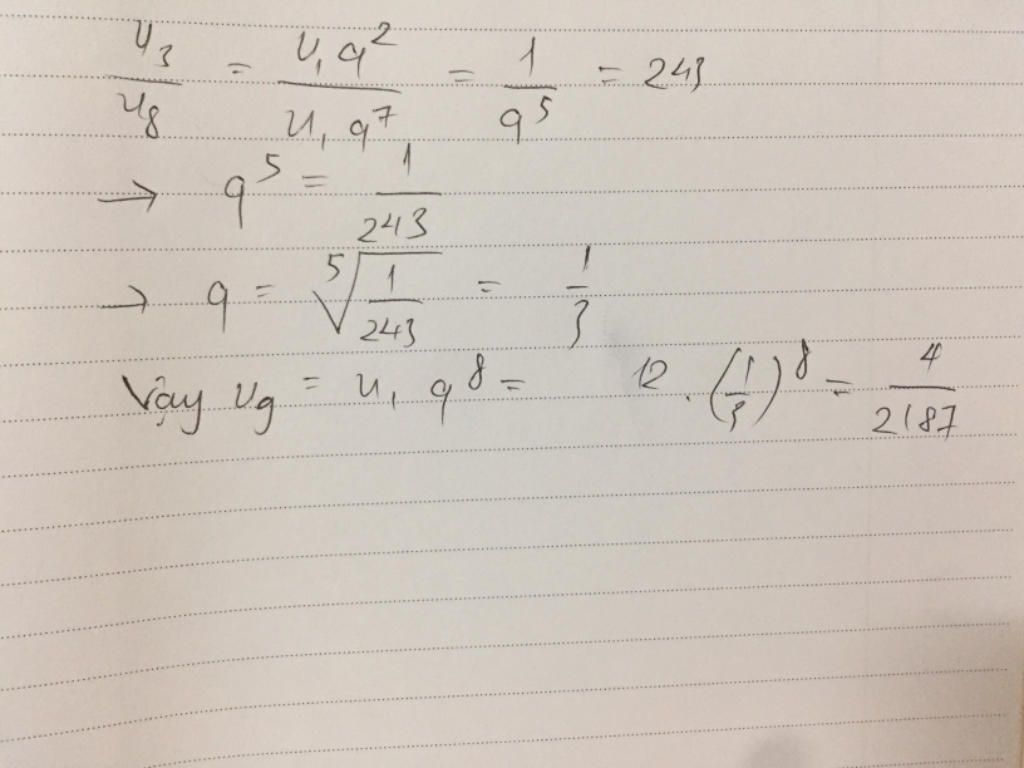 u₃/u₈ = u₁q²/u₁q⁷ = 1/q⁵ = 243
→ q⁵ = 1/243
→ q = ⁵√(1/243) = 1/3
Vậy u₉ = u₁q⁸ = 12 . (1/3)⁸ = 4/2187